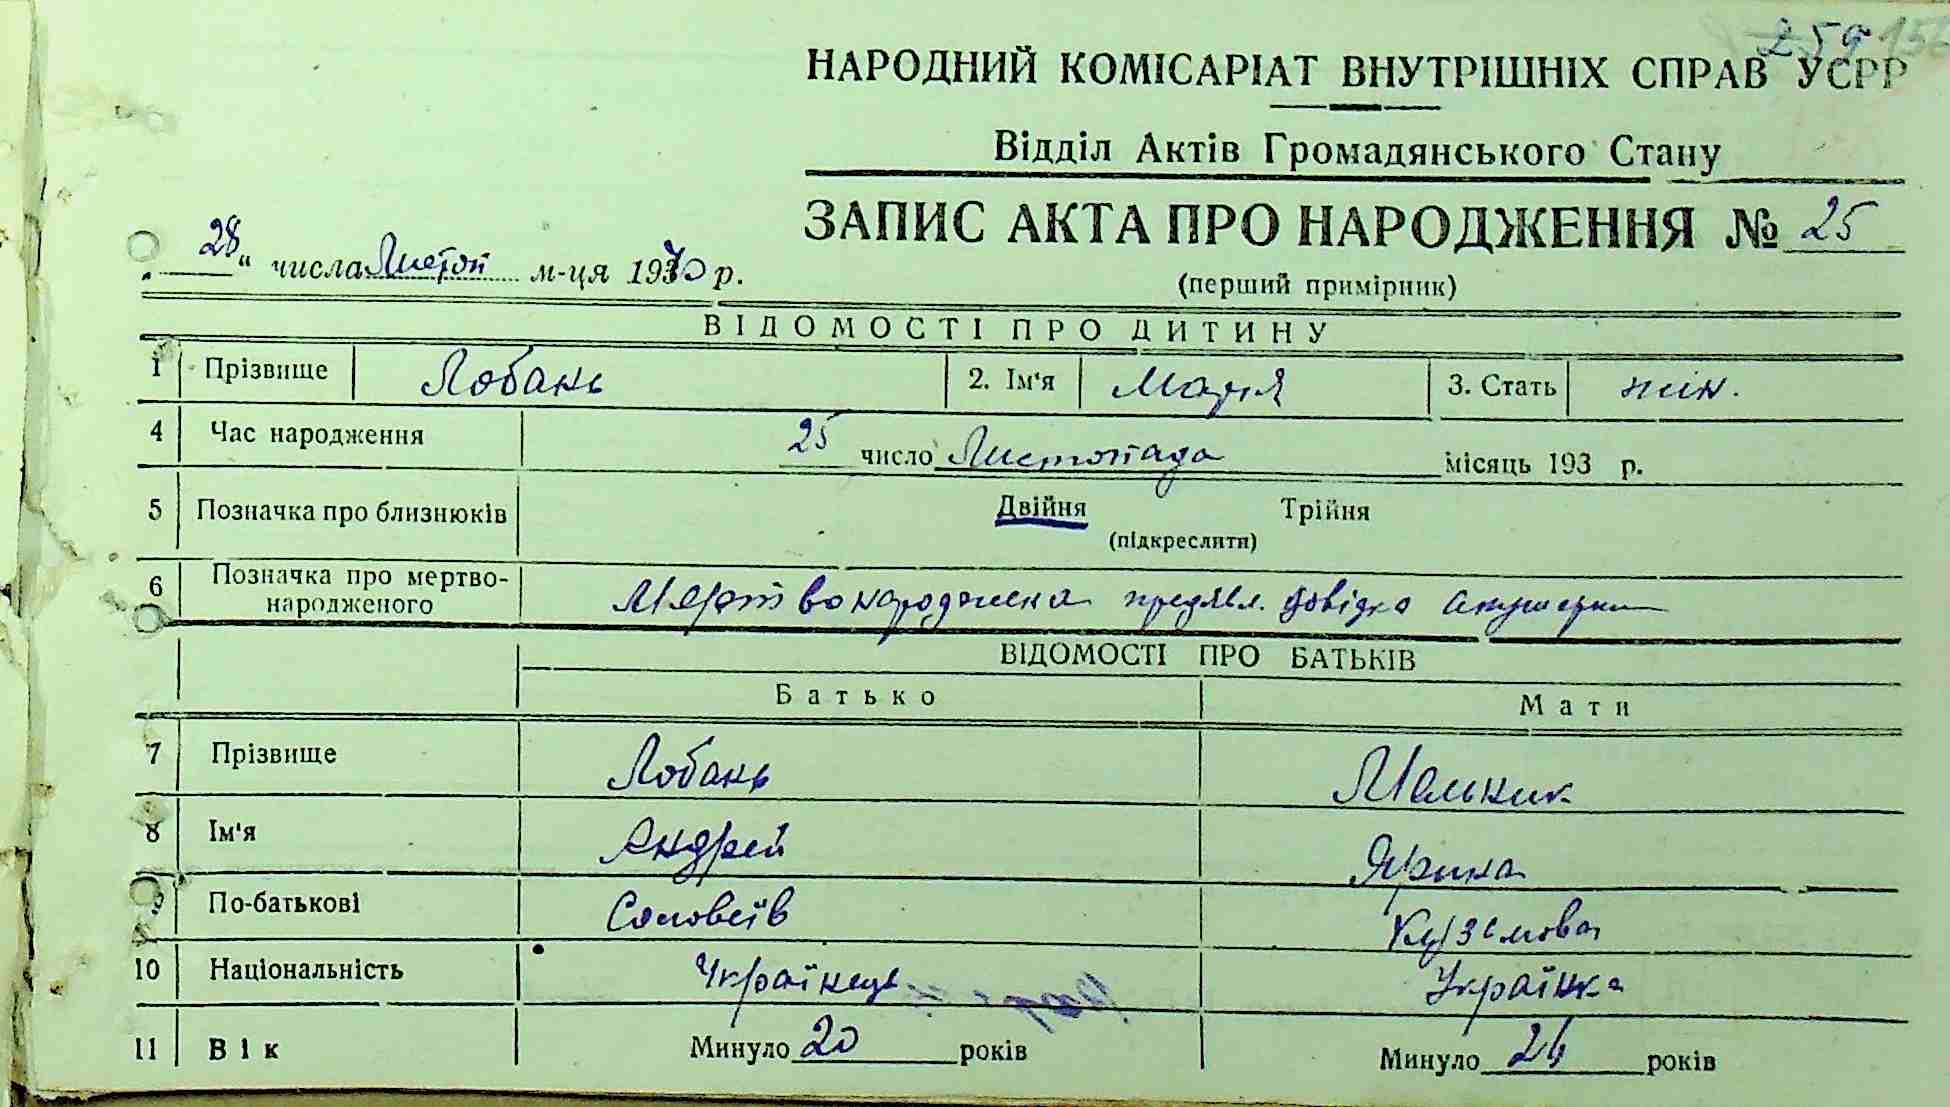 259 156
НАРОДНИЙ КОМІСАРІАТ ВНУТРІШНІХ СПРАВ УСРР
Відділ Актів Громадянського Стану
ЗАПИС АКТА ПРО НАРОДЖЕННЯ № 25
„ 28 “ числа Листоп м-ця 1930 р.
(перший примірник)
ВІДОМОСТІ ПРО ДИТИНУ
1 Прізвище Лобань 2. Ім'я Марія 3. Стать жін.
4 Час народження 25 число Листопада місяць 193 р.
5 Позначка про близнюків Двійня Трійня
(підкреслити)
6 Позначка про мертво-
народженого Мертвонароджена предявл. довідка акушерки
ВІДОМОСТІ ПРО БАТЬКІВ
Батько Мати
7 Прізвище Лобань Мельник
8 Ім'я Андрей Ярина
9 По-батькові Соловеїв Кузьмова
10 Національність Українець Українка
11 Вік Минуло 20 років Минуло 24 років